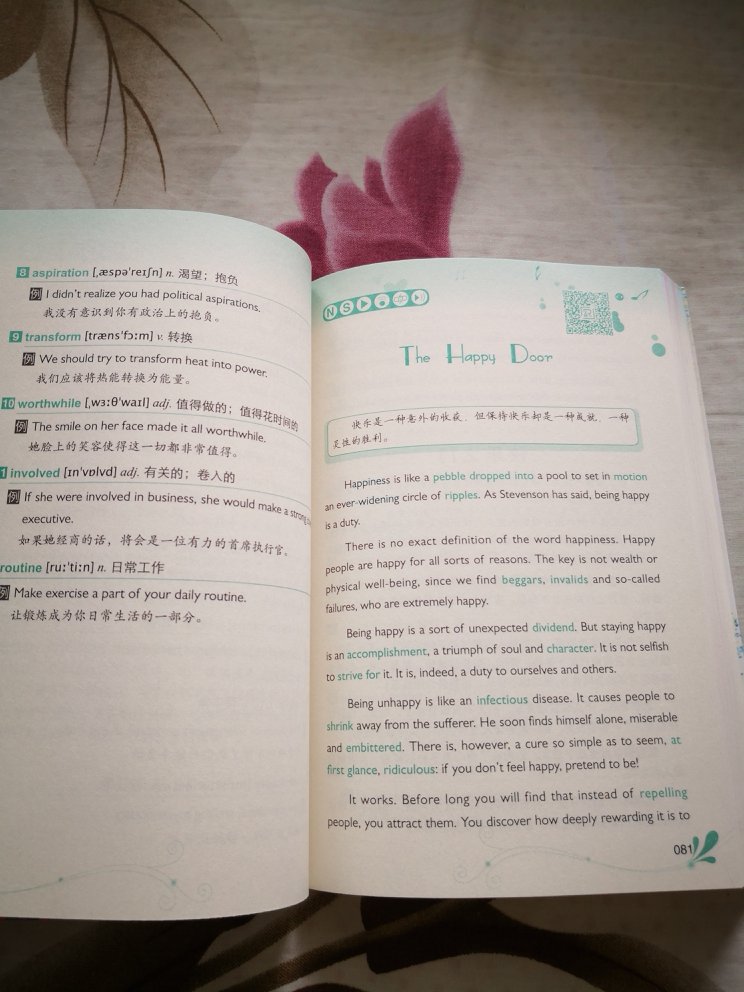 8 aspiration [ˌæspəˈreɪʃn] n. 渴望；抱负
例 I didn't realize you had political aspirations.
我没有意识到你有政治上的抱负。
9 transform [trænsˈfɔːm] v. 转换
例 We should try to transform heat into power.
我们应该将热能转换为能量。
10 worthwhile [ˌwɜːθˈwaɪl] adj. 值得做的；值得花时间的
例 The smile on her face made it all worthwhile.
她脸上的笑容使得这一切都非常值得。
1 involved [ɪnˈvɒlvd] adj. 有关的；卷入的
例 If she were involved in business, she would make a strong
executive.
如果她经商的话，将会是一位有力的首席执行官。
routine [ruːˈtiːn] n. 日常工作
例 Make exercise a part of your daily routine.
让锻炼成为你日常生活的一部分。
N S
The Happy Door
快乐是一种意外的收获，但保持快乐却是一种成就，一种
灵性的胜利。
Happiness is like a pebble dropped into a pool to set in motion
an ever-widening circle of ripples. As Stevenson has said, being happy
is a duty.
There is no exact definition of the word happiness. Happy
people are happy for all sorts of reasons. The key is not wealth or
physical well-being, since we find beggars, invalids and so-called
failures, who are extremely happy.
Being happy is a sort of unexpected dividend. But staying happy
is an accomplishment, a triumph of soul and character. It is not selfish
to strive for it. It is, indeed, a duty to ourselves and others.
Being unhappy is like an infectious disease. It causes people to
shrink away from the sufferer. He soon finds himself alone, miserable
and embittered. There is, however, a cure so simple as to seem, at
first glance, ridiculous: if you don't feel happy, pretend to be!
It works. Before long you will find that instead of repelling
people, you attract them. You discover how deeply rewarding it is to
081